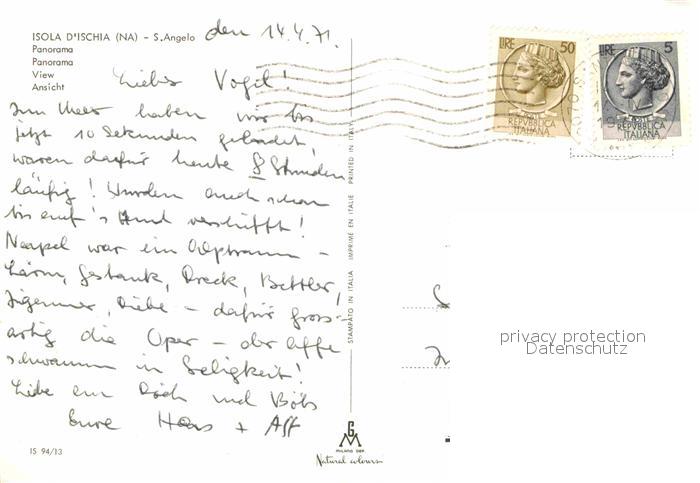 ISOLA D'ISCHIA (NA) - S.Angelo
Panorama
Panorama
View
Ansicht
den 14.4.71.
Liebes Vogil!
Im Meer haben wir bis
jetzt 10 Sekunden gebadet,
waren dafür heute 8 Stunden
läufig! Wurden auch schon
bis auf's Hemd verschifft!
Neapel war ein Alptraum -
Lärm, Gestank, Dreck, Bettler,
Zigeuner, Diebe - dafür gross-
artig die Oper - der Affe
schwamm in Seligkeit!
Liebe an und
Eure + Aff
IS 94/13
STAMPATO IN ITALIA IMPRIMÉ EN ITALIE PRINTED IN ITALY
GM
MILANO DEP.
Natural colours
LIRE 50
POSTE
REPVBBLICA
ITALIANA
LIRE 5
POSTE
REPVBBLICA
ITALIANA
privacy protection
Datenschutz